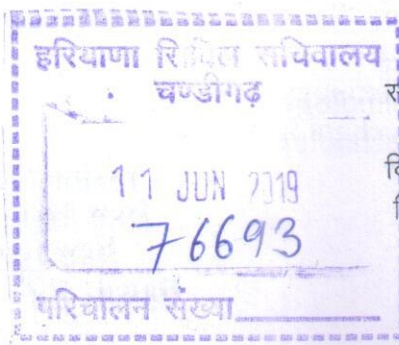 हरियाणा सिविल सचिवालय
चण्डीगढ़
11 JUN 2019
76693
परिचालन संख्या